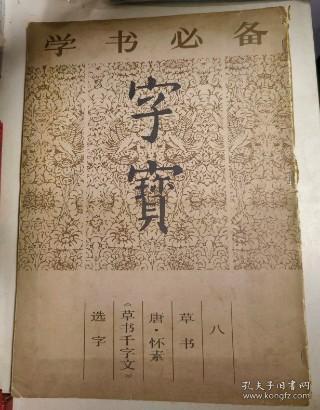 学书必备
字寳
八
草书
唐·怀素
《草书千字文》
选字
孔夫子旧书网
book.kongfz.com